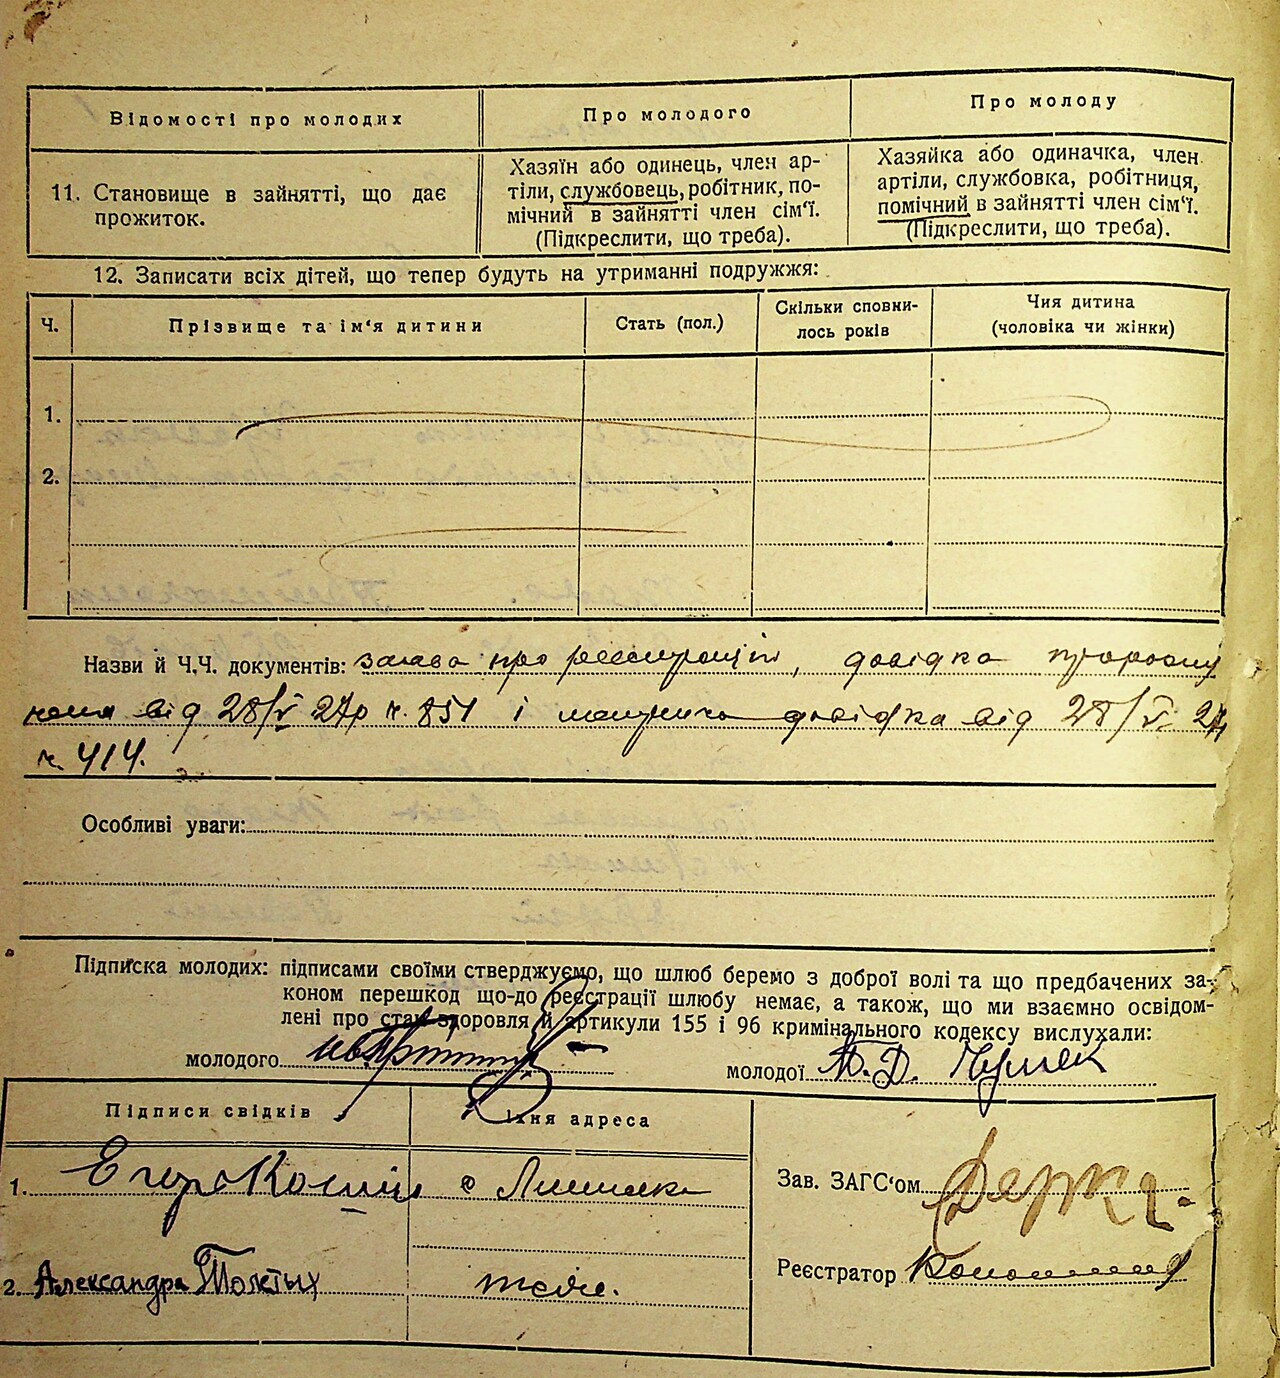 Відомості про молодих
Про молодого
Про молоду
11. Становище в зайнятті, що дає
прожиток.
Хазяїн або одинець, член ар-
тіли, службовець, робітник, по-
мічний в зайнятті член сім'ї.
(Підкреслити, що треба).
Хазяйка або одиначка, член
артіли, службовка, робітниця,
помічний в зайнятті член сім'ї.
(Підкреслити, що треба).
12. Записати всіх дітей, що тепер будуть на утриманні подружжя:
Ч.
Прізвище та ім'я дитини
Стать (пол.)
Скільки сповни-
лось років
Чия дитина
(чоловіка чи жінки)
1.
2.
Назви й Ч.Ч. документів: заява про реєстрацію, довідка
від 28/V 27р ч. 851 і довідка від 28/V 27
ч. 414.
Особливі уваги:
Підписка молодих: підписами своїми стверджуємо, що шлюб беремо з доброї волі та що предбачених за-
коном перешкод що-до реєстрації шлюбу немає, а також, що ми взаємно освідом-
лені про стан здоровля й артикули 155 і 96 кримінального кодексу вислухали:
молодого
молодої
Підписи свідків
їхня адреса
1.
2. Александра Толстых
тоже.
Зав. ЗАГС'ом
Реєстратор